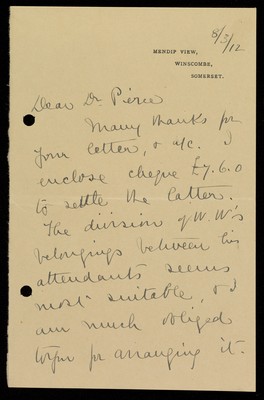 8/3/12
MENDIP VIEW,
WINSCOMBE,
SOMERSET.
Dear Dr. Pierce
Many thanks for
your letter, & a/c. I
enclose cheque £7.6.0
to settle the latter.
The division of W.W's
belongings between his
attendants seems
most suitable, & I
am much obliged
to you for arranging it.